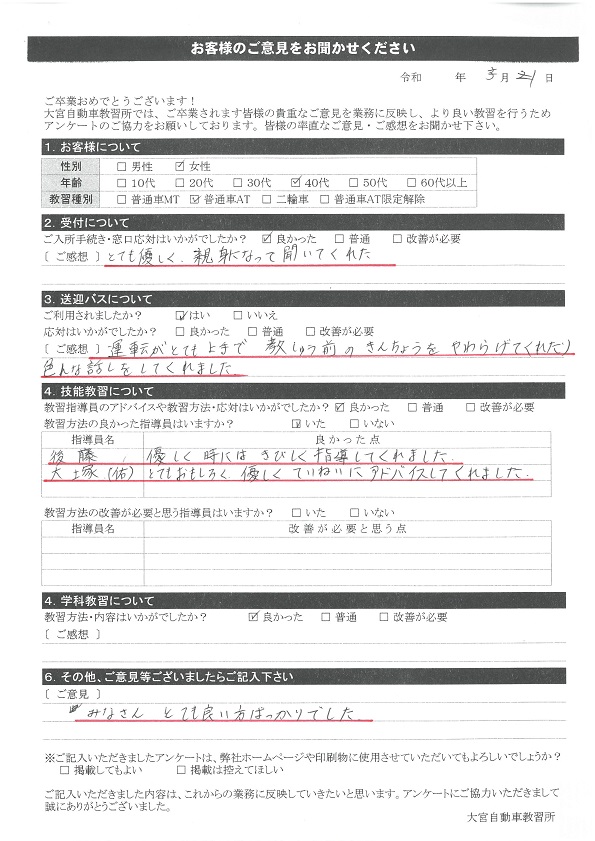 お客様のご意見をお聞かせください
令和 年 3月 21日
ご卒業おめでとうございます！
大宮自動車教習所では、ご卒業されます皆様の貴重なご意見を業務に反映し、より良い教習を行うため
アンケートのご協力をお願いしております。皆様の率直なご意見・ご感想をお聞かせ下さい。
1. お客様について
性別 □ 男性 ☑ 女性
年齢 □ 10代 □ 20代 □ 30代 ☑ 40代 □ 50代 □ 60代以上
教習種別 □ 普通車MT ☑ 普通車AT □ 二輪車 □ 普通車AT限定解除
2. 受付について
ご入所手続き・窓口応対はいかがでしたか？ ☑ 良かった □ 普通 □ 改善が必要
〔 ご感想 〕 とても優しく、親身になって聞いてくれた
3. 送迎バスについて
ご利用されましたか？ ☑ はい □ いいえ
応対はいかがでしたか？ □ 良かった □ 普通 □ 改善が必要
〔 ご感想 〕 運転がとても上手で 教しゅう前のきんちょうをやわらげてくれたり
色んな話しをしてくれました
4. 技能教習について
教習指導員のアドバイスや教習方法・応対はいかがでしたか？ ☑ 良かった □ 普通 □ 改善が必要
教習方法の良かった指導員はいますか？ ☑ いた □ いない
指導員名 良かった点
後藤 優しく時にはきびしく指導してくれました。
大塚(佑) とてもおもしろく、優しくていねいにアドバイスしてくれました。
教習方法の改善が必要と思う指導員はいますか？ □ いた □ いない
指導員名 改善が必要と思う点
4. 学科教習について
教習方法・内容はいかがでしたか？ ☑ 良かった □ 普通 □ 改善が必要
〔 ご感想 〕
6. その他、ご意見等ございましたらご記入下さい
〔 ご意見 〕
みなさん とても良い方ばっかりでした
※ご記入いただきましたアンケートは、弊社ホームページや印刷物に使用させていただいてもよろしいでしょうか？
□ 掲載してもよい □ 掲載は控えてほしい
ご記入いただきました内容は、これからの業務に反映していきたいと思います。アンケートにご協力いただきまして
誠にありがとうございました。
大宮自動車教習所